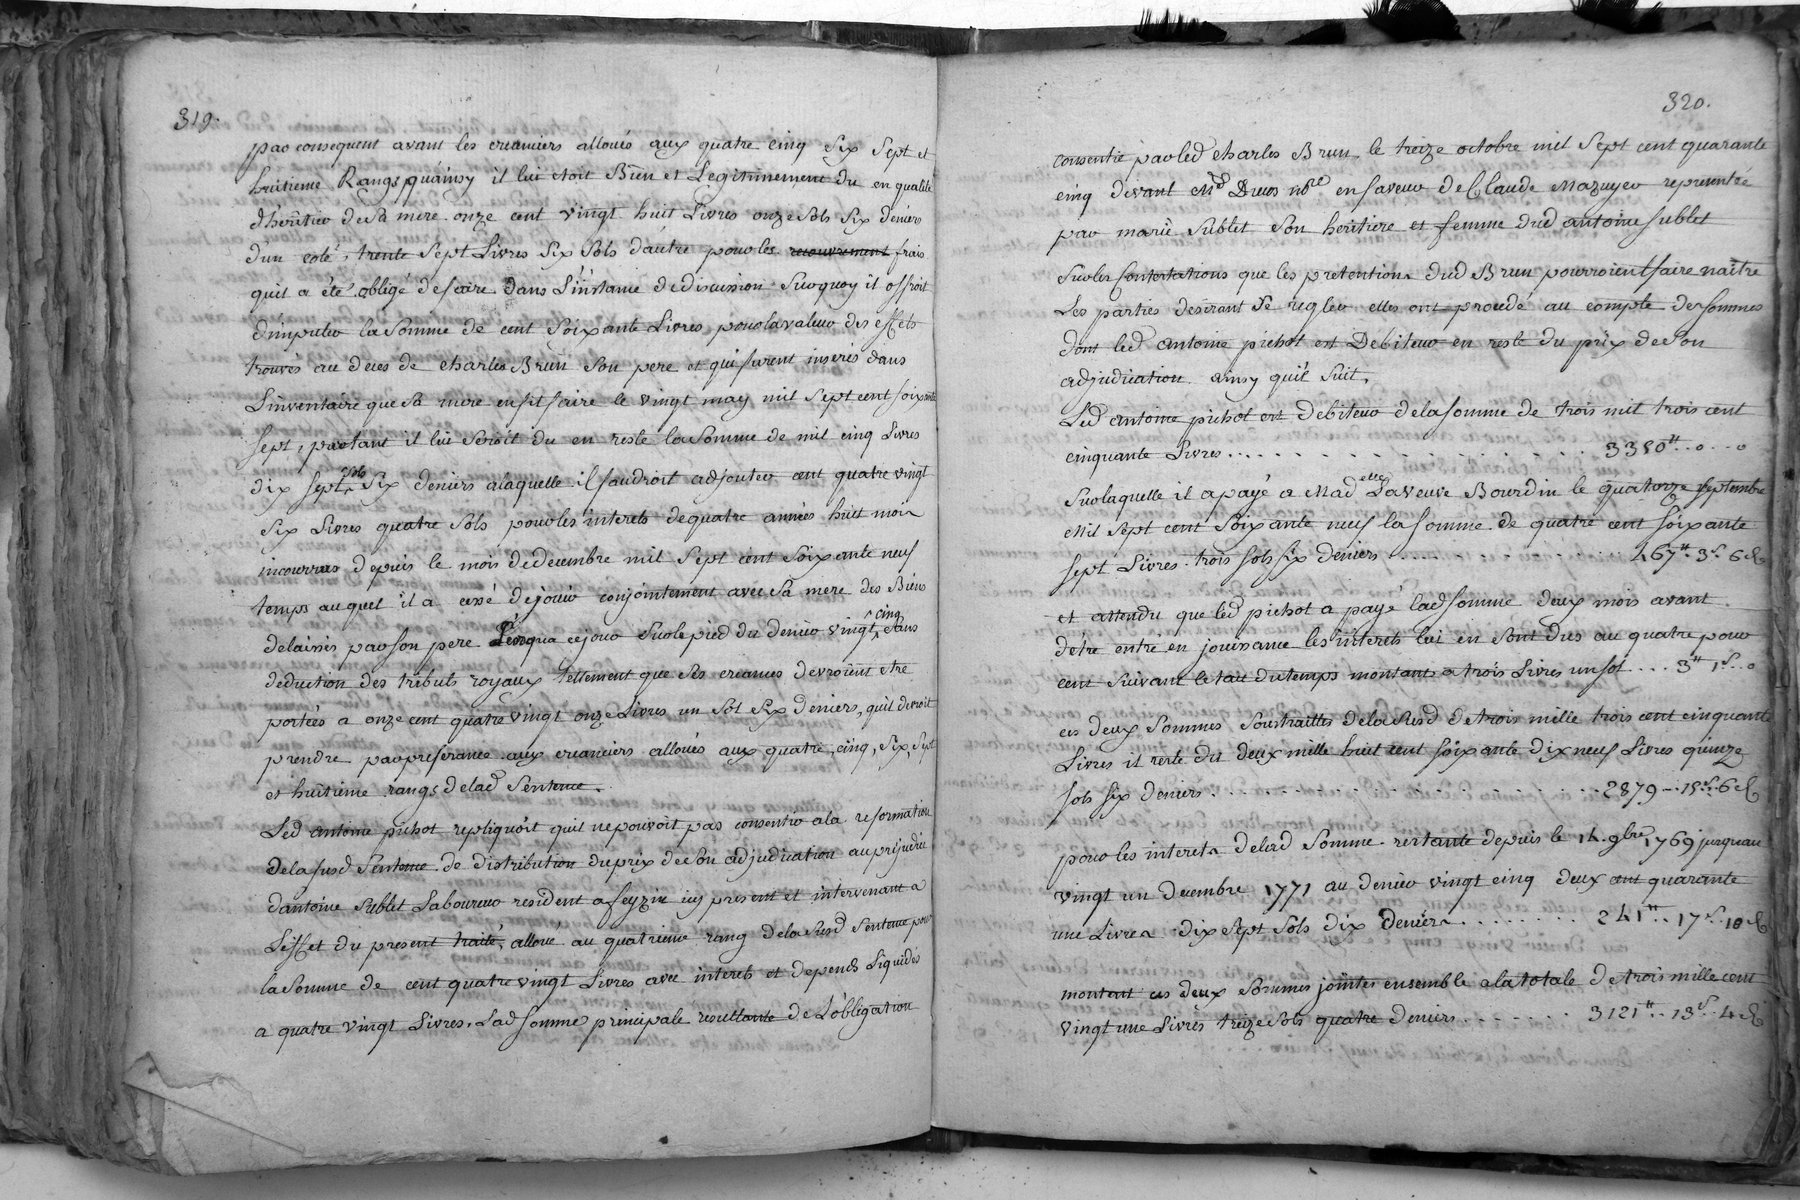 319.
par consequent avant les creanciers alloués aux quatre cinq six sept et
huitieme Rangs, qu'ainsy il lui etoit Bien et Legitimement du en qualité
d'heritier de sa mere onze cent vingt huit Livres onze sols six deniers
d'un coté, trente sept Livres six sols d'autre pour les recouvrement frais
quil a été obligé de faire dans L'instance de discussion surquoy il offroit
d'imputer la somme de cent soixante Livres pour la valeur des effets
trouvés au deces de charles Brun son pere et qui furent inserés dans
L'inventaire que sa mere en fit faire le vingt may mil sept cent soixante
sept, partant il lui seroit du en reste la somme de mil cinq Livres
dix sept sols six deniers a laquelle il faudroit adjouter cent quatre vingt
six Livres quatre sols pour les interets de quatre années huit mois
incourrus depuis le mois de decembre mil sept cent soixante neuf
temps auquel il a cessé de jouir conjointement avec sa mere des Biens
delaissés par son pere Jusqua ce jour sur le pied du denier vingt cinq sans
deduction des tributs royaux tellement que ses creances devroient etre
portées a onze cent quatre vingt onze Livres un sol six deniers, quil devroit
prendre par preferance aux creanciers alloués aux quatre, cinq, six, sept
et huitieme rangs de lad sentence.
Led antoine pichot repliquoit quil ne pouvoit pas consentir a la reformation
de la susd sentence de distribution du prix de son adjudication au prejudice
d'antoine sublet Laboureur resident a feyzin icy present et intervenant a
L'effet du present traité, alloué au quatrieme rang de la susd sentence pour
la somme de cent quatre vingt Livres avec interets et depends Liquidés
a quatre vingt Livres. Lad somme principale resultante de L'obligation
320.
consentie par led charles Brun le treize octobre mil sept cent quarante
cinq devant Md Duos nore en faveur de Claude Mazuyer representé
par marie sublet son heritiere et femme dud antoine sublet
sur les Contestations que les pretentions dud Brun pourroient faire naitre
Les parties desirant se regler elles ont procedé au compte des sommes
dont led antoine pichot est Debiteur en reste du prix de son
adjudication ainsy quil suit.
Led antoine pichot est debiteur de la somme de trois mil trois cent
cinquante Livres . . . . . . . . . . . . . . . . 3350# . . o . . o
sur laquelle il a payé a Madelle La veuve Bourdin le quatorze septembre
Mil sept cent soixante neuf la somme de quatre cent soixante
sept Livres trois sols six deniers . . . . . . . . . . . 467# 3s. 6d
et attendu que led pichot a payé lad somme deux mois avant
d'etre entré en jouissance les interets lui en sont dus au quatre pour
cent suivant le taux du temps montant a trois Livres un sol . . . . 3# 1s. . o
ces deux sommes soustraittes de la susd de trois mille trois cent cinquante
Livres il reste du deux mille huit cent soixante dix neuf Livres quinze
sols six deniers . . . . . . . . . . . . . . . . . 2879 - 15s. 6d
pour les interets de lad somme restante depuis le 14 9bre 1769 jusqueau
vingt un Decembre 1771 au denier vingt cinq deux cent quarante
une Livres dix sept sols dix deniers . . . . . . . . 241# . . 17s. 10d
montant ces deux sommes jointes ensemble a la totale de trois mille cent
vingt une Livres treize sols quatre deniers . . . . . . . 3121# . . 13s. 4d